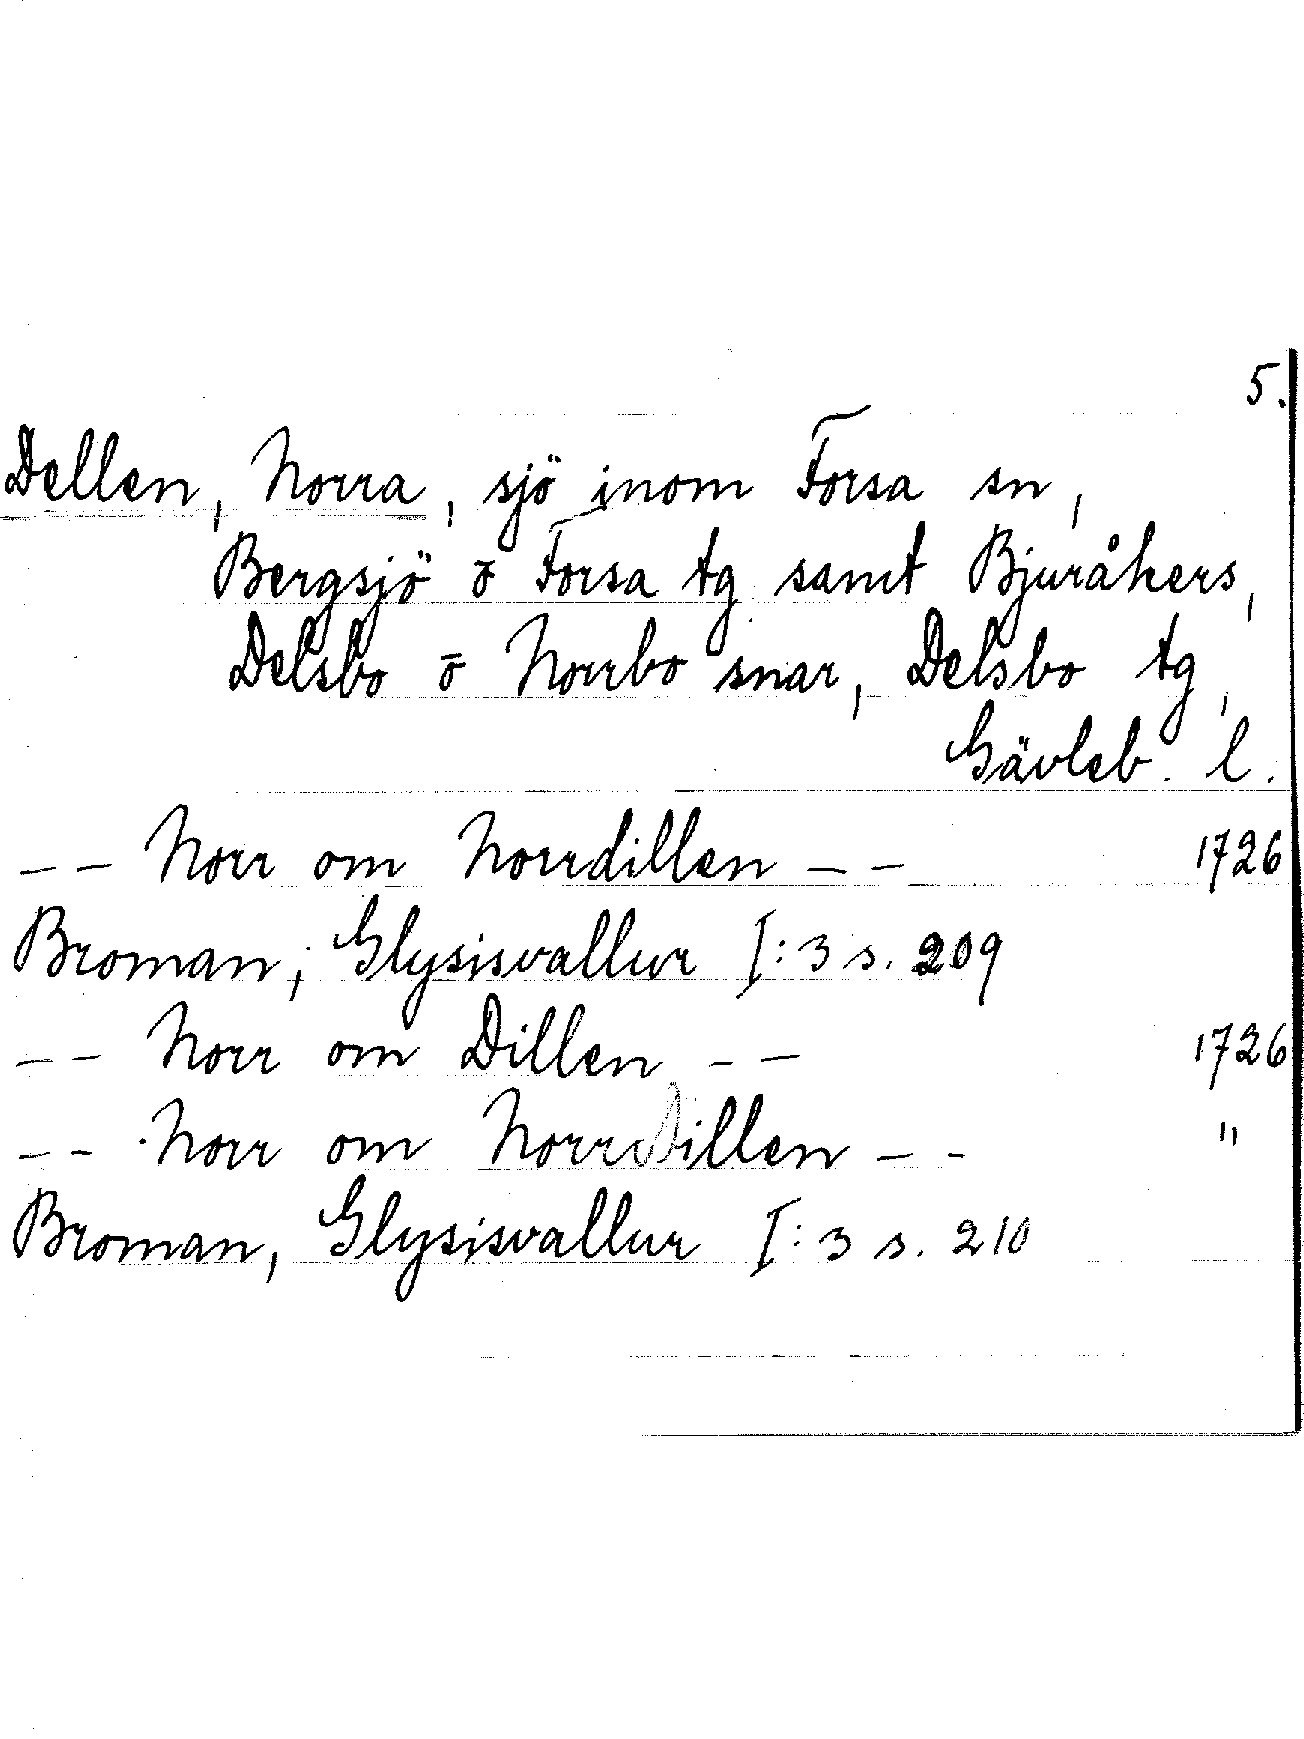 5.
Dellen, Norra, sjö inom Forsa sn,
Bergsjö o Forsa tg samt Bjuråkers,
Delsbo o Norrbo snar, Delsbo tg,
Gävleb. l.
-- Norr om Norrdillen -- 1726
Broman, Glysisvallur I:3 s. 209
-- Norr om Dillen -- 1726
-- Norr om NorrDillen -- "
Broman, Glysisvallur I:3 s. 210